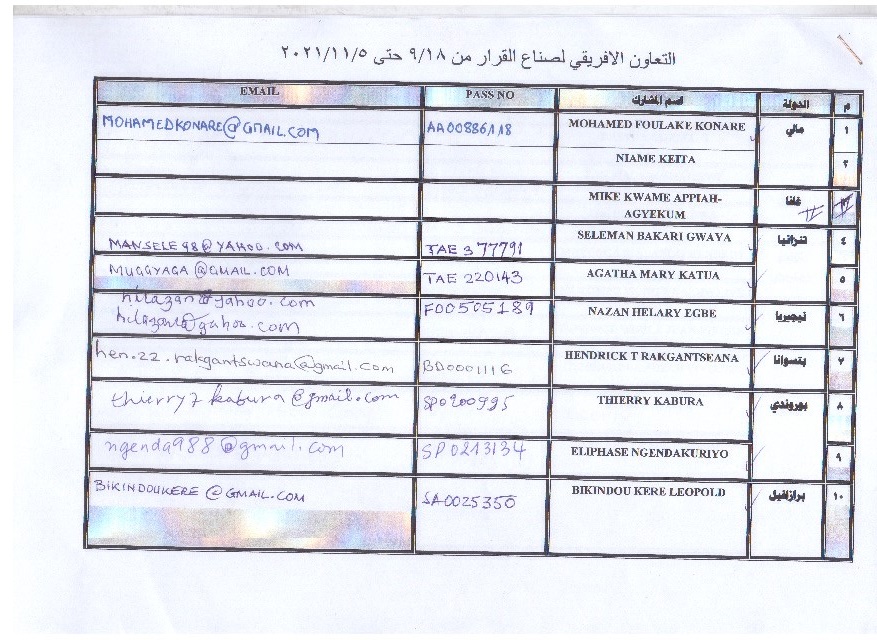 التعاون الافريقي لصناع القرار من ٩/١٨ حتى ٢٠٢١/١١/٥
م الدولة اسم المشارك PASS NO EMAIL
١ مالي MOHAMED FOULAKE KONARE AA00886118 MOHAMEDKONARE@GMAIL.COM
٢ NIAME KEITA
٣ غانا MIKE KWAME APPIAH-
AGYEKUM
٤ تنزانيا SELEMAN BAKARI GWAYA TAE 377791 MANSELE98@YAHOO.COM
٥ AGATHA MARY KATUA TAE 220143 MUGGYAGA@GMAIL.COM
٦ نيجيريا NAZAN HELARY EGBE F00505189 hilazan@yahoo.com
hilazan@yahoo.com
٧ بتسوانا HENDRICK T RAKGANTSEANA BD0001116 hen.22.rakgantswana@gmail.com
٨ بوروندي THIERRY KABURA SP0200995 thierry7kabura@gmail.com
٩ ELIPHASE NGENDAKURIYO SP0213134 ngenda988@gmail.com
١٠ برازافيل BIKINDOU KERE LEOPOLD SA0025350 BIKINDOUKERE@GMAIL.COM